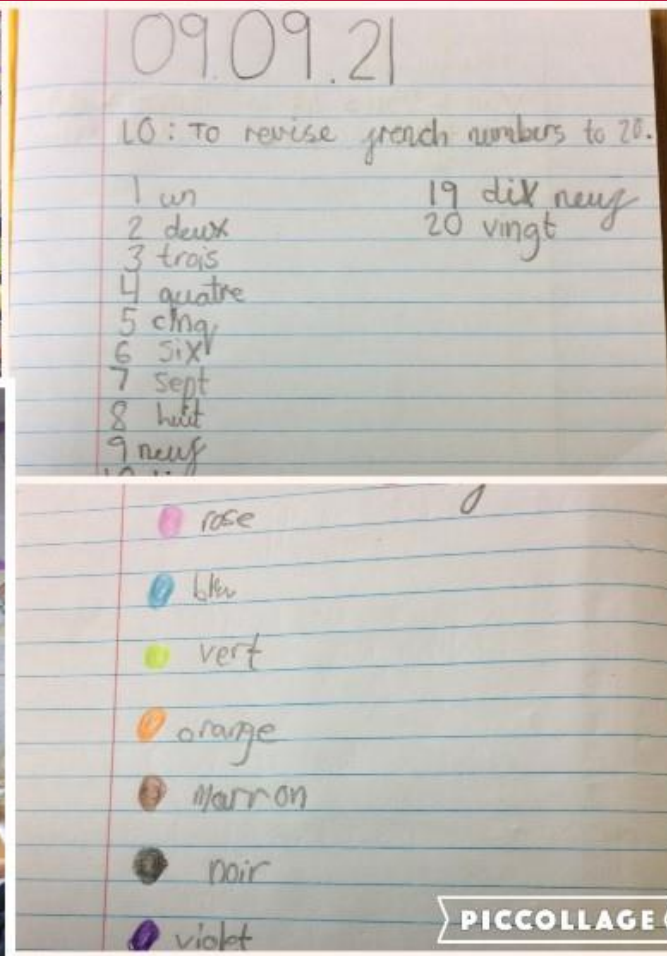 09.09.21
LO: To revise french numbers to 20.
1 un
2 deux
3 trois
4 quatre
5 cinq
6 six
7 sept
8 huit
9 neuf
19 dix neuf
20 vingt
rose
bleu
vert
orange
Marron
noir
violet
PICCOLLAGE